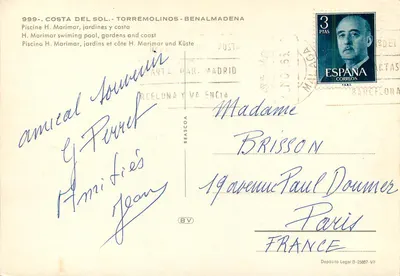 999-. COSTA DEL SOL.- TORREMOLINOS - BENALMADENA
Piscina H. Marimar, jardines y costa
H. Marimar swiming pool, gardens and coast
Piscine H. Marimar, jardins et côte H. Marimar and Küste
3
PTAS
ESPAÑA
MADRID
BARCELONA
MALAGA
amical souvenir
G Perret
Amitiés
Jean
BEASCOA
BV
Madame
BRISSON
19 avenue Paul Doumer
Paris
FRANCE